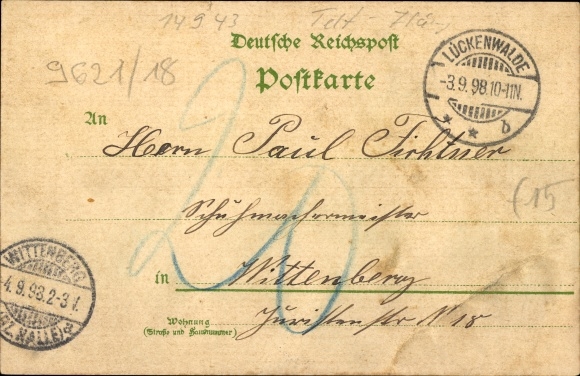 14943
9621/18
Deutsche Reichspost
Postkarte
LUCKENWALDE
-3.9.98.10-11N.
* * b
An
Herrn Paul Fichtner
(15
Schuhmachermeister
20
WITTENBERG
4.9.98.2-3
(BZ. HALLE)
in Wittenberg
Wohnung
(Straße und Hausnummer)
Juristenstr N 18